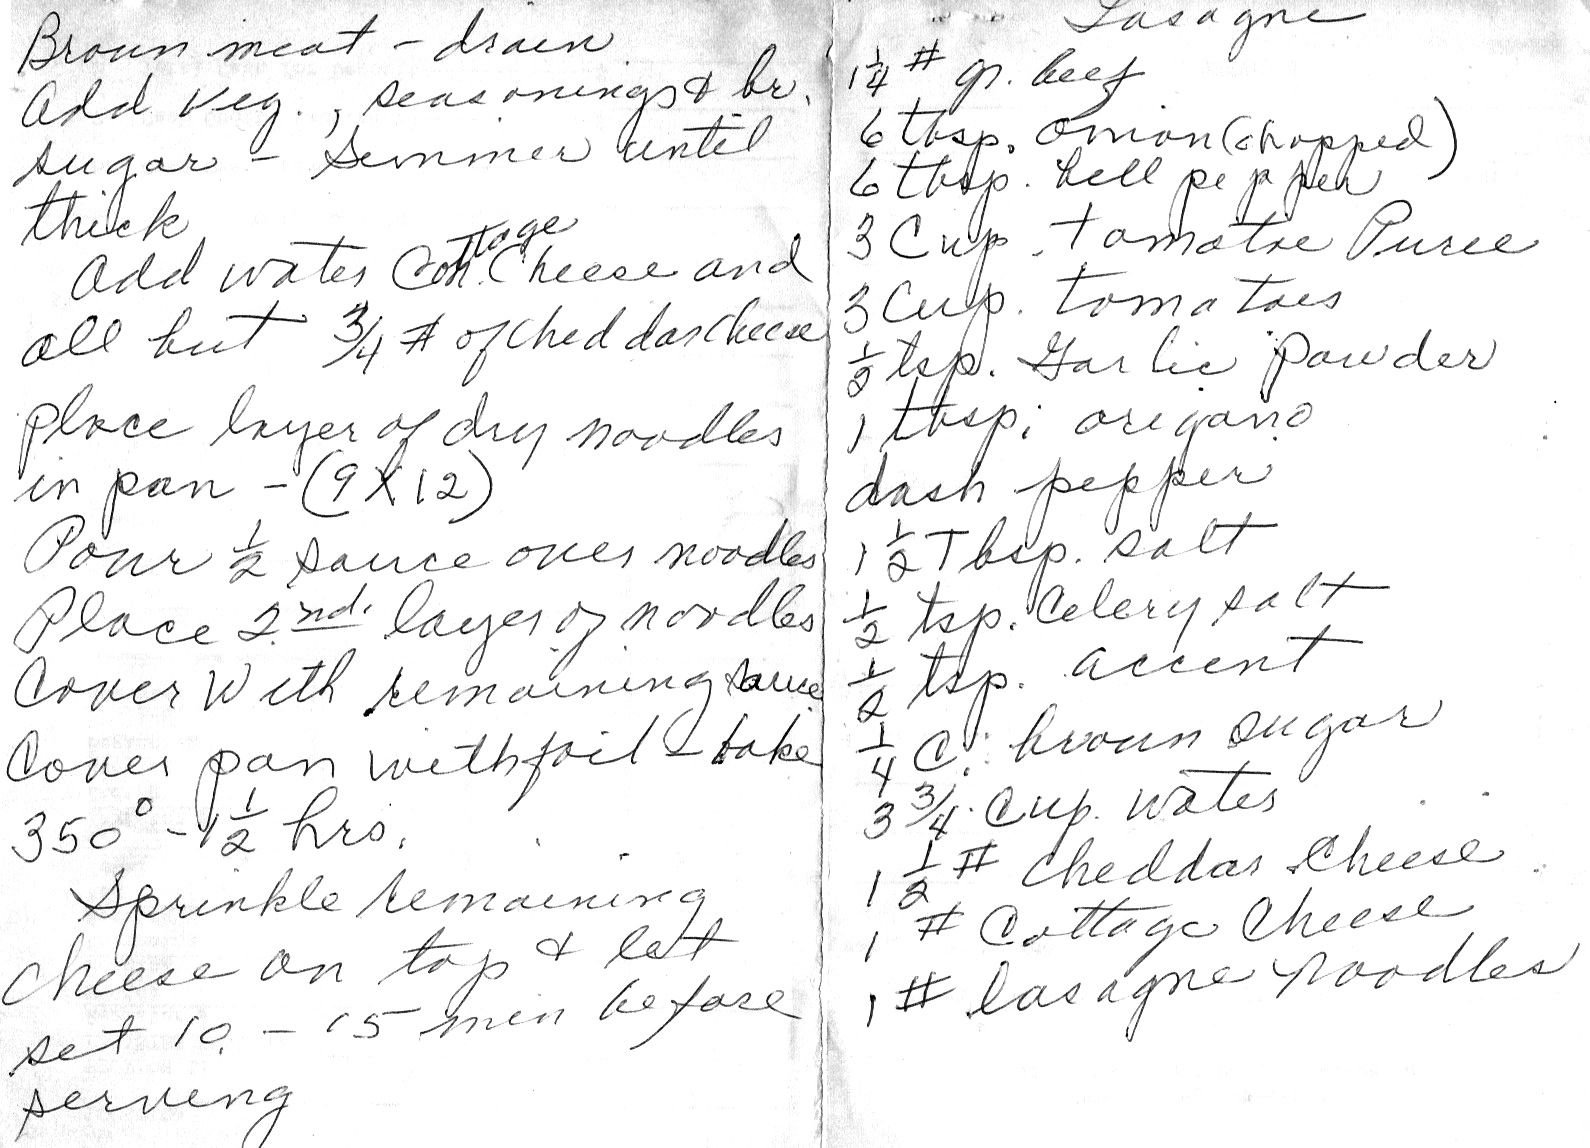 Brown meat - drain
Add veg., seasonings & br.
sugar - Simmer until
thick
Add water Cottage Cheese and
all but 3/4 # of Cheddar Cheese
place layer of dry noodles
in pan - (9 X 12)
Pour 1/2 sauce over noodles
Place 2nd. layer of noodles
Cover With remaining sauce
Cover pan with foil - bake
350° - 1 1/2 hrs.
Sprinkle remaining
cheese on top & let
set 10 - 15 min before
serving
Lasagne
1 1/4 # gr. beef
6 tbsp. onion (chopped)
6 tbsp. bell pepper
3 Cup. tomatoe Puree
3 Cup. tomatoes
1/2 tsp. Garlic Powder
1 tbsp. oregano
dash pepper
1 1/2 Tbsp. salt
1/2 tsp. Celery salt
1/2 tsp. accent
1/4 C. brown sugar
3 3/4 cup. water
1 1/2 # Cheddar Cheese
1 # Cottage Cheese
1 # lasagne noodles